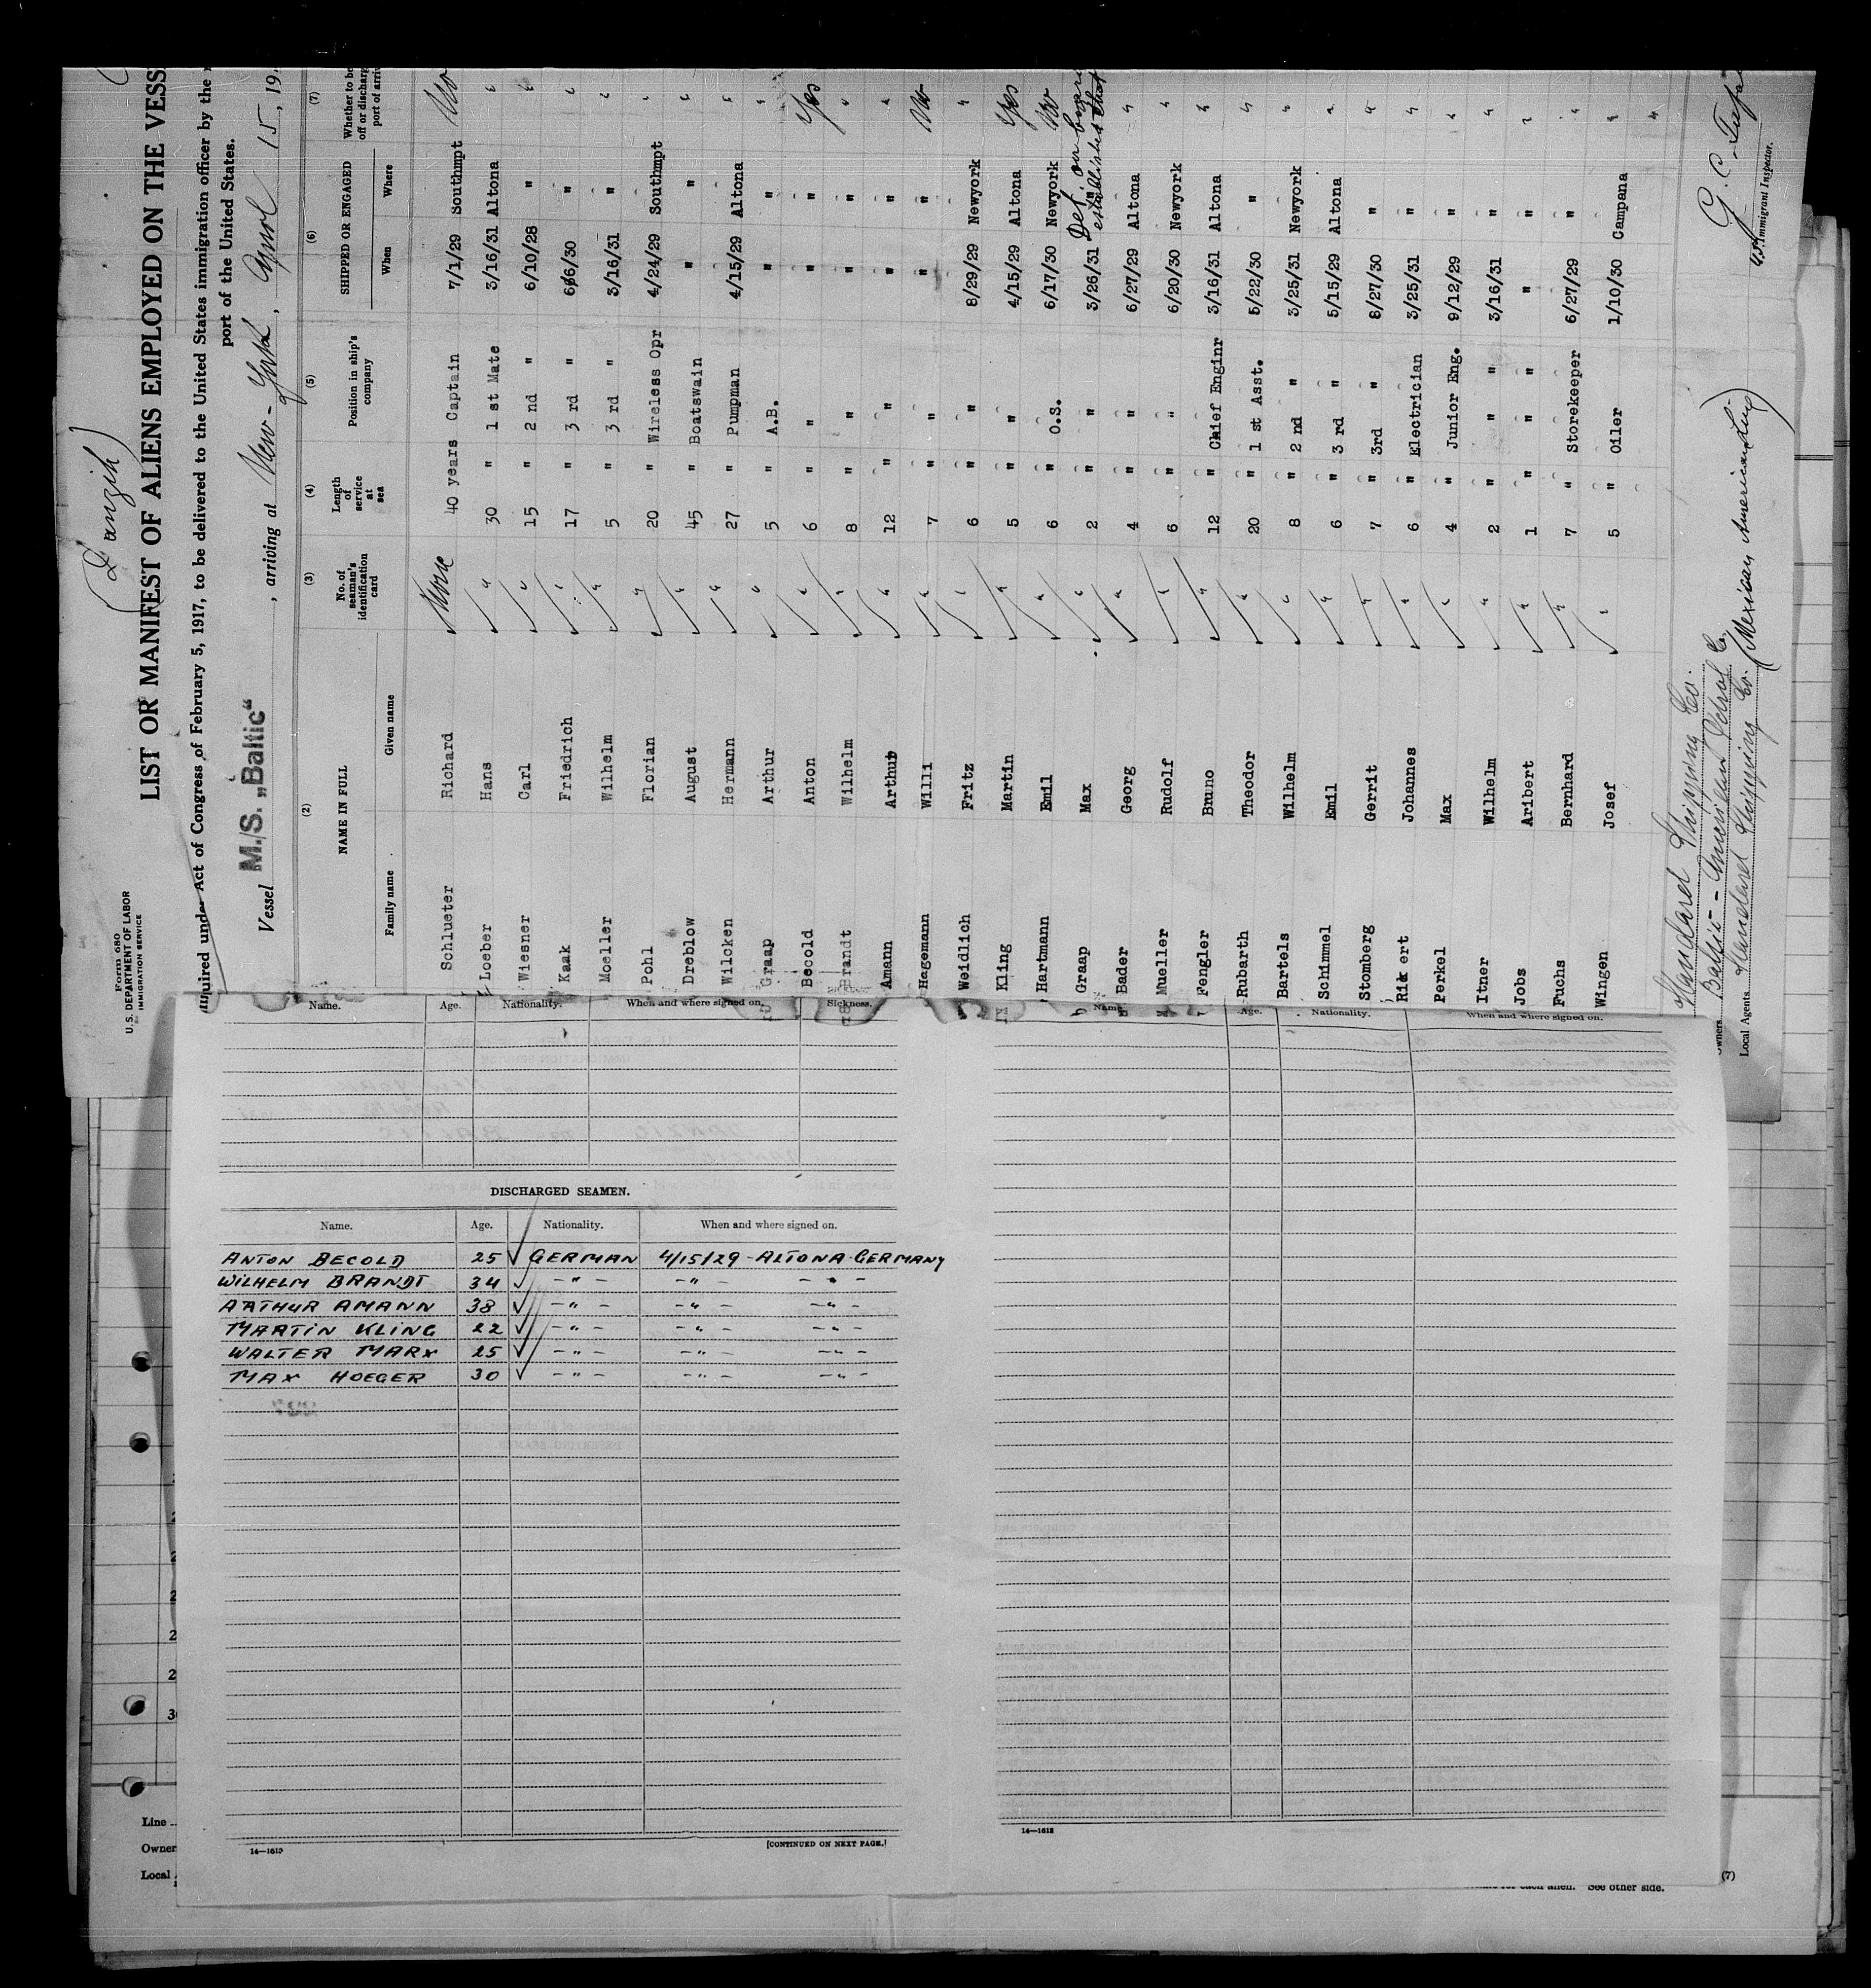 (Danzig)
Form 680
U.S. DEPARTMENT OF LABOR
IMMIGRATION SERVICE
LIST OR MANIFEST OF ALIENS EMPLOYED ON THE VESS
quired under Act of Congress of February 5, 1917, to be delivered to the United States immigration officer by the
port of the United States.
Vessel M./S. „Baltic“, arriving at New-York, April 15, 19
(2) (3) (4) (5) (6) (7)
NAME IN FULL No. of seaman's identification card Length of service at sea Position in ship's company SHIPPED OR ENGAGED Whether to be off or discharg port of arriv
Family name Given name When Where
Schlueter Richard None 40 years Captain 7/1/29 Southmpt No
Loeber Hans " 30 " 1 st Mate 3/16/31 Altona "
Wiesner Carl " 15 " 2 nd " 6/10/28 " "
Kaak Friedrich " 17 " 3 rd " 6/6/30 " "
Moeller Wilhelm " 5 " 3 rd " 3/16/31 " "
Pohl Florian " 20 " Wireless Opr 4/24/29 Southmpt "
Dreblow August " 45 " Boatswain " " "
Wilcken Hermann " 27 " Pumpman 4/15/29 Altona "
Graap Arthur " 5 " A.B. " " "
Becold Anton " 6 " " " " Yes
Brandt Wilhelm " 8 " " " " "
Amann Arthur " 12 " " " " "
Hagemann Willi " 7 " " " " No
Weidlich Fritz " 6 " " 8/29/29 Newyork "
Kling Martin " 5 " " 4/15/29 Altona Yes
Hartmann Emil " 6 " O.S. 6/17/30 Newyork No
Graap Max " 2 " " 3/26/31 " Def. on
Bader Georg " 4 " " 6/27/29 Altona "
Mueller Rudolf " 6 " " 6/20/30 Newyork "
Fengler Bruno " 12 " Chief Enginr 3/16/31 Altona "
Rubarth Theodor " 20 " 1 st Asst. 5/22/30 " "
Bartels Wilhelm " 8 " 2 nd " 3/25/31 Newyork "
Schimmel Emil " 6 " 3 rd " 5/15/29 Altona "
Stomberg Gerrit " 7 " 3rd " 8/27/30 " "
Rikert Johannes " 6 " Electrician 3/25/31 " "
Perkel Max " 4 " Junior Eng. 9/12/29 " "
Itner Wilhelm " 2 " " " 3/16/31 " "
Jobs Aribert " 1 " " " " " "
Fuchs Bernhard " 7 " Storekeeper 6/27/29 " "
Wingen Josef " 5 " Oiler 1/10/30 Campana "
Standard Shipping Co.
Owners Baltic-American Petrol Co.
Local Agents Standard Shipping Co. (Mexican American Line)
G. C.
Immigrant Inspector.
Name. Age. Nationality. When and where signed on. Sickness.
DISCHARGED SEAMEN.
Name. Age. Nationality. When and where signed on.
ANTON BECOLD 25 GERMAN 4/15/29 - ALTONA - GERMANY
WILHELM BRANDT 34 - " - - " - - " -
ARTHUR AMANN 38 - " - - " - - " -
MARTIN KLING 22 - " - - " - - " -
WALTER MARX 25 - " - - " - - " -
MAX HOEGER 30 - " - - " - - " -
14—1613
[CONTINUED ON NEXT PAGE.]
Name. Age. Nationality. When and where signed on.
14—1613
Line
Owner
Local
See other side.
(7)